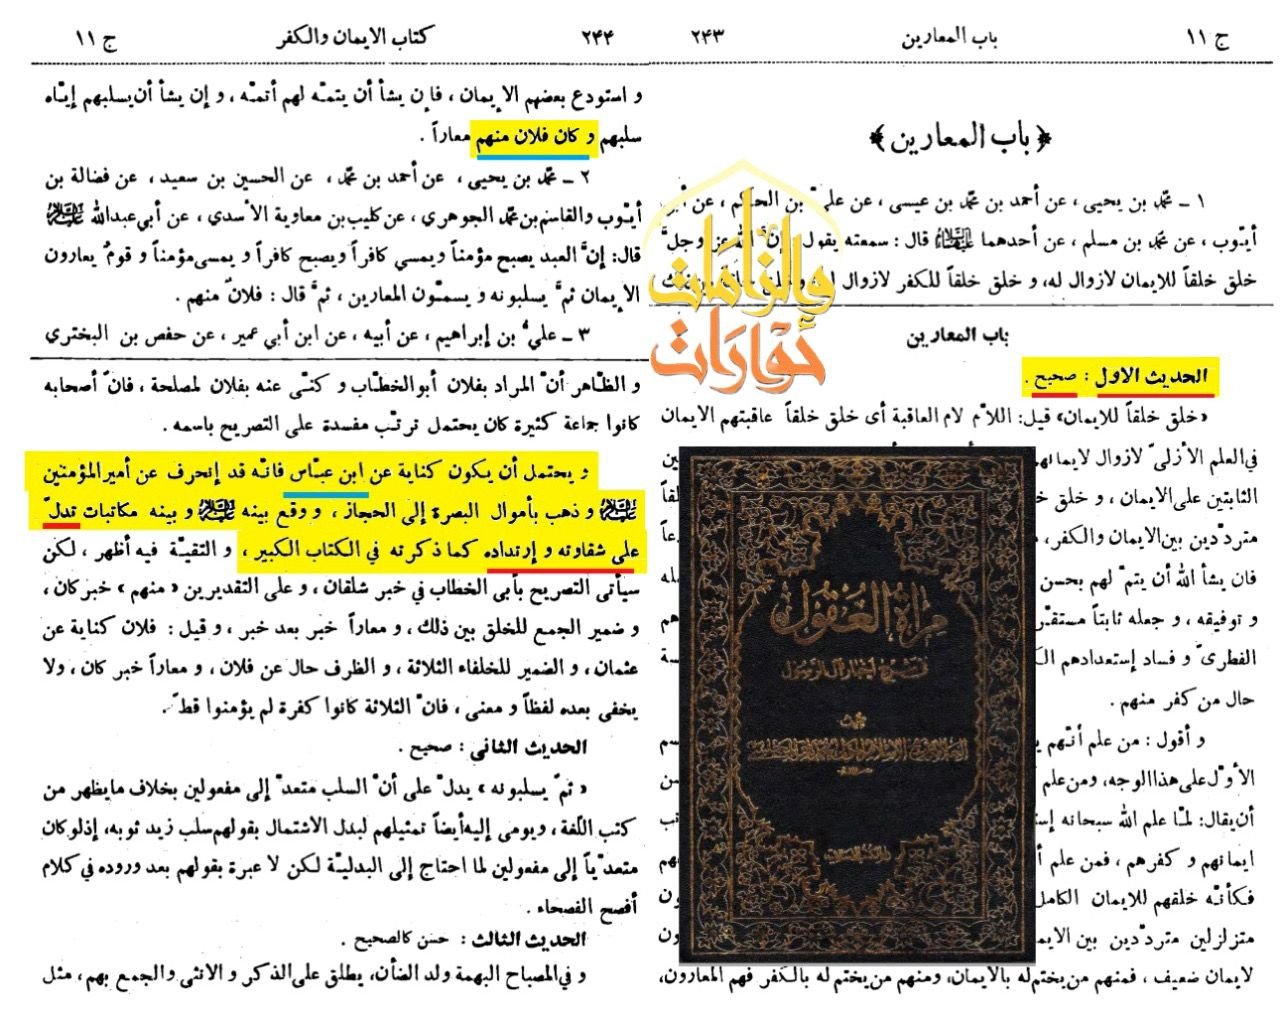 ج ١١
باب المعارين
٢٤٣
﴿ باب المعارين ﴾
١ ـ محمّد بن يحيى ، عن أحمد بن محمّد بن عيسى ، عن عليّ بن الحكم ، عن أبي
أيّوب ، عن محمّد بن مسلم ، عن أحدهما عليه السلام قال : سمعته يقول : إنَّ الله عزّ وجلَّ
خلق خلقاً للايمان لازوال له، و خلق خلقاً للكفر لازوال له
باب المعارين
الحديث الاول : صحيح .
«خلق خلقاً للايمان» قيل: اللاّم لام العاقبة أى خلق خلقاً عاقبتهم الايمان
في العلم الأزلىّ لازوال لايمانهم
الثابتين على الايمان ، و خلق
متردّدين بين الايمان والكفر،
فان يشأ الله أن يتمّ لهم بحسن
و توفيقه ، و جعله ثابتاً
الفطرىّ و فساد إستعدادهم
حال من كفر منهم .
و أقول : من علم أنّهم
الأوّل على هذا الوجه، ومن علم
أن يقال: لمّا علم الله سبحانه
ايمانهم و كفرهم ، فمن علم
فكأنّه خلقهم للايمان الكامل
متزلزلين متردّدين بين
لايمان ضعيف ، فمنهم من يختم له بالايمان، ومنهم من يختم له بالكفر فهم المعارون،
٢٤٤
كتاب الايمان والكفر
ج ١١
و استودع بعضهم الإيمان ، فإن يشأ أن يتمّه لهم أتمّه ، و إن يشأ أن يسلبهم إيّاه
سلبهم و كان فلان منهم معاراً .
٢ ـ محمّد بن يحيى ، عن أحمد بن محمّد ، عن الحسين بن سعيد ، عن فضالة بن
أيّوب والقاسم بن محمّد الجوهري ، عن كليب بن معاوية الأسدي ، عن أبي عبدالله عليه السلام
قال: إنَّ العبد يصبح مؤمناً ويمسي كافراً ويصبح كافراً و يمسي مؤمناً و قومٌ يعارون
الإيمان ثمَّ يسلبونه و يسمّون المعارين ، ثمَّ قال : فلانٌ منهم .
٣ ـ عليُّ بن إبراهيم ، عن أبيه ، عن ابن أبي عمير ، عن حفص بن البختري
و الظّاهر أنّ المراد بفلان أبوالخطّاب و كنّى عنه بفلان لمصلحة ، فانّ أصحابه
كانوا جماعة كثيرة كان يحتمل ترتّب مفسدة على التصريح باسمه .
و يحتمل أن يكون كناية عن ابن عبّاس فانّه قد إنحرف عن أميرالمؤمنين
عليه السلام و ذهب بأموال البصرة إلى الحجاز ، و وقع بينه عليه السلام و بينه مكاتبات تدلّ
على شقاوته و إرتداده كما ذكرته في الكتاب الكبير ، و التقيّة فيه أظهر ، لكن
سيأتى التصريح بأبى الخطاب في خبر شلقان ، و على التقديرين « منهم » خبر كان ،
و ضمير الجمع للخلق بين ذلك ، و معاراً خبر بعد خبر ، و قيل : فلان كناية عن
عثمان ، و الضمير للخلفاء الثلاثة ، و الظرف حال عن فلان ، و معاراً خبر كان ، ولا
يخفى بعده لفظاً و معنى ، فانّ الثلاثة كانوا كفرة لم يؤمنوا قطّ .
الحديث الثانى : صحيح .
« ثمّ يسلبونه » يدلّ على أنّ السلب متعدّ إلى مفعولين بخلاف ما يظهر من
كتب اللّغة ، و يومى إليه أيضاً تمثيلهم لبدل الاشتمال بقولهم سلب زيد ثوبه، إذ لو كان
متعدّياً إلى مفعولين لما احتاج إلى البدليّة لكن لا عبرة بقولهم بعد وروده في كلام
أفصح الفصحاء .
الحديث الثالث : حسن كالصحيح .
و في المصباح البهمة ولد الضأن، يطلق على الذكر و الانثى والجمع بهم ، مثل
وإلزامات
حوارات
مرآة العقول
في شرح أخبار آل الرسول